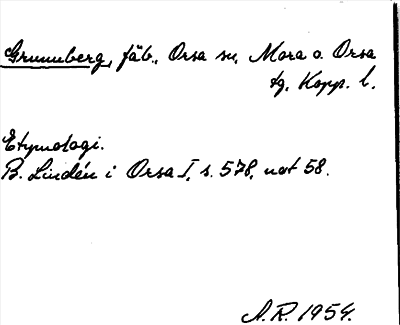 Grunuberg, fäb., Orsa sn, Mora o. Orsa
tg, Kopp. l.
Etymologi.
B. Lindén i Orsa I, s. 578, not 58.
A.R. 1954.